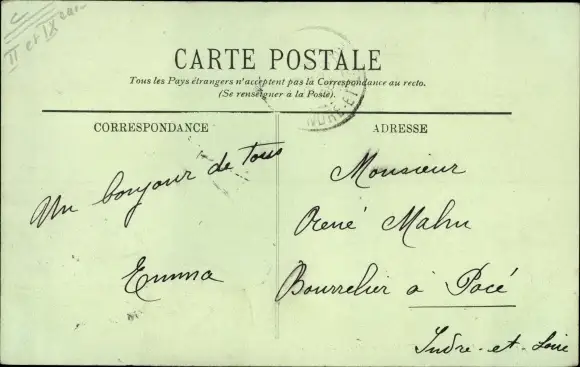 II et IX
CARTE POSTALE
Tous les Pays étrangers n'acceptent pas la Correspondance au recto.
(Se renseigner à la Poste).
CORRESPONDANCE
ADRESSE
Un bonjour de tous
Emma
Monsieur
René Mahu
Bourrelier à Pocé
Indre-et-Loire
INDRE-ET-